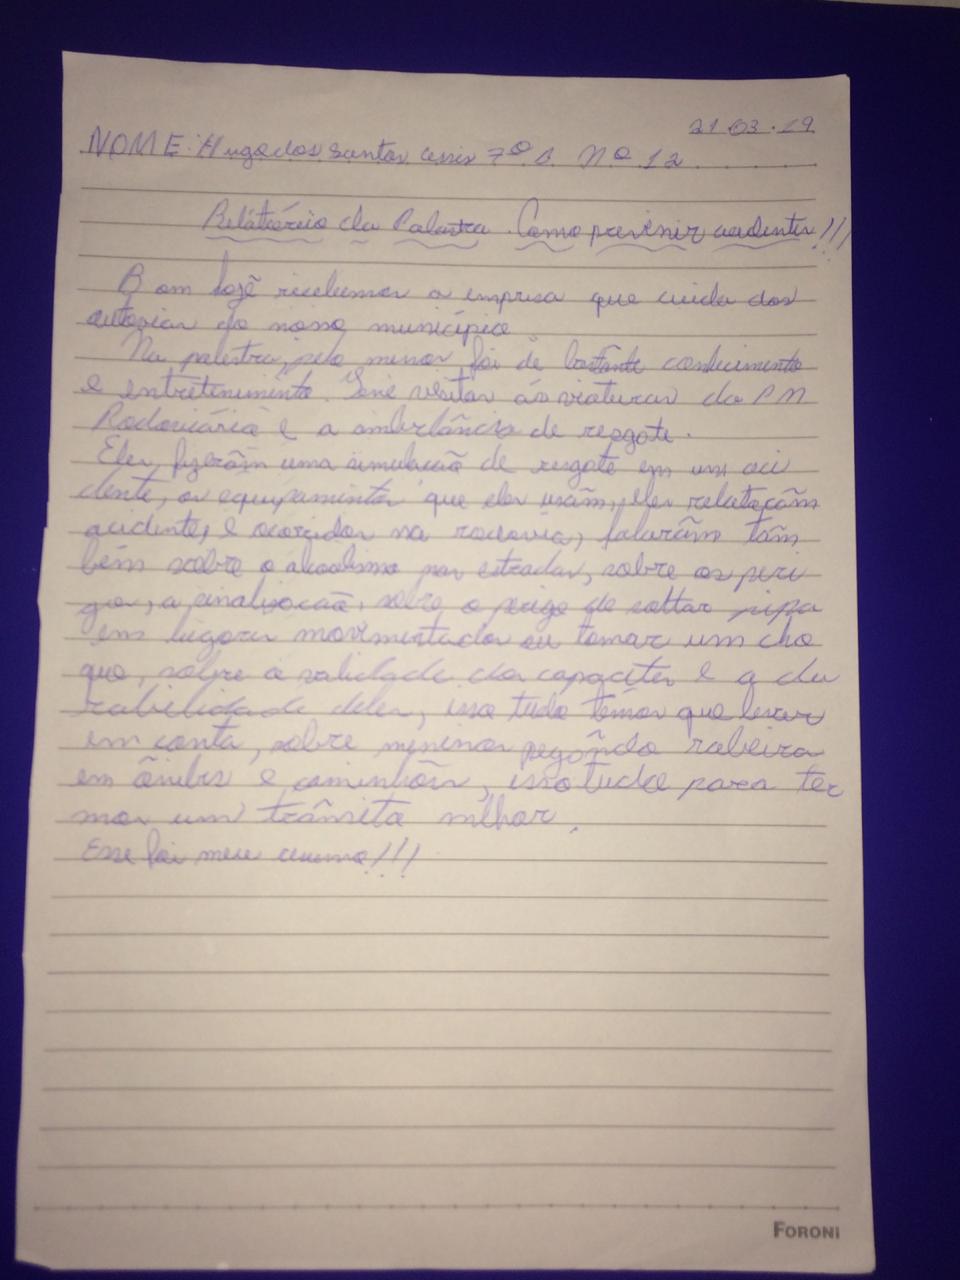 21.03.19
NOME: Hugo dos Santos Assis 7º B Nº 12
Relátório da Palestra. Como previnir acidentes!!!
Bom hoje recebemos a empresa que cuida das
autovias do nosso município.
Na palestra, pelo menos foi de bastante conhecimento
e entretenimento. visitar ás viaturas da PM
Rodoviária e a ambulância de resgate.
Eles fizerãm uma simulacão de resgate em um aci
dente, os equipamentos que eles usãm, eles relatarãm
acidentes, e ocorridos na rodovia, falarãm tãm
bém sobre o alcoolismo nas estradas, sobre os peri
gos, a sinalizacão, sobre o perigo de soltar pipa
em lugares movimentados ou tomar um cho
que, sobre a validade dos capacetes e a du
rabilidade deles, isso tudo temos que levar
em conta, sobre meninos pegãndo rabeira
em ônibus e caminhões, isso tudo para ter
mos um trânsito melhor.
Esse foi meu resumo!!!
FORONI